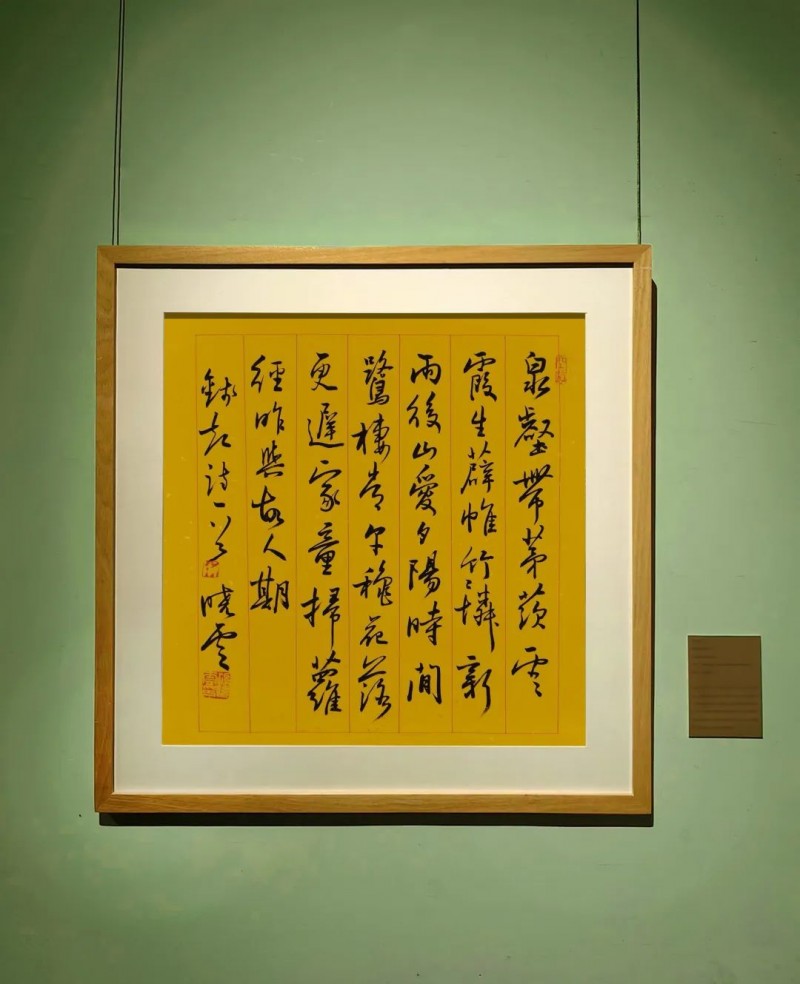 泉壑帶茅茨雲
霞生薜帷竹憐新
雨後山愛夕陽時閒
鷺棲常早穐花落
更遲家童掃蘿
經昨與故人期
錢起詩一首 曉雲